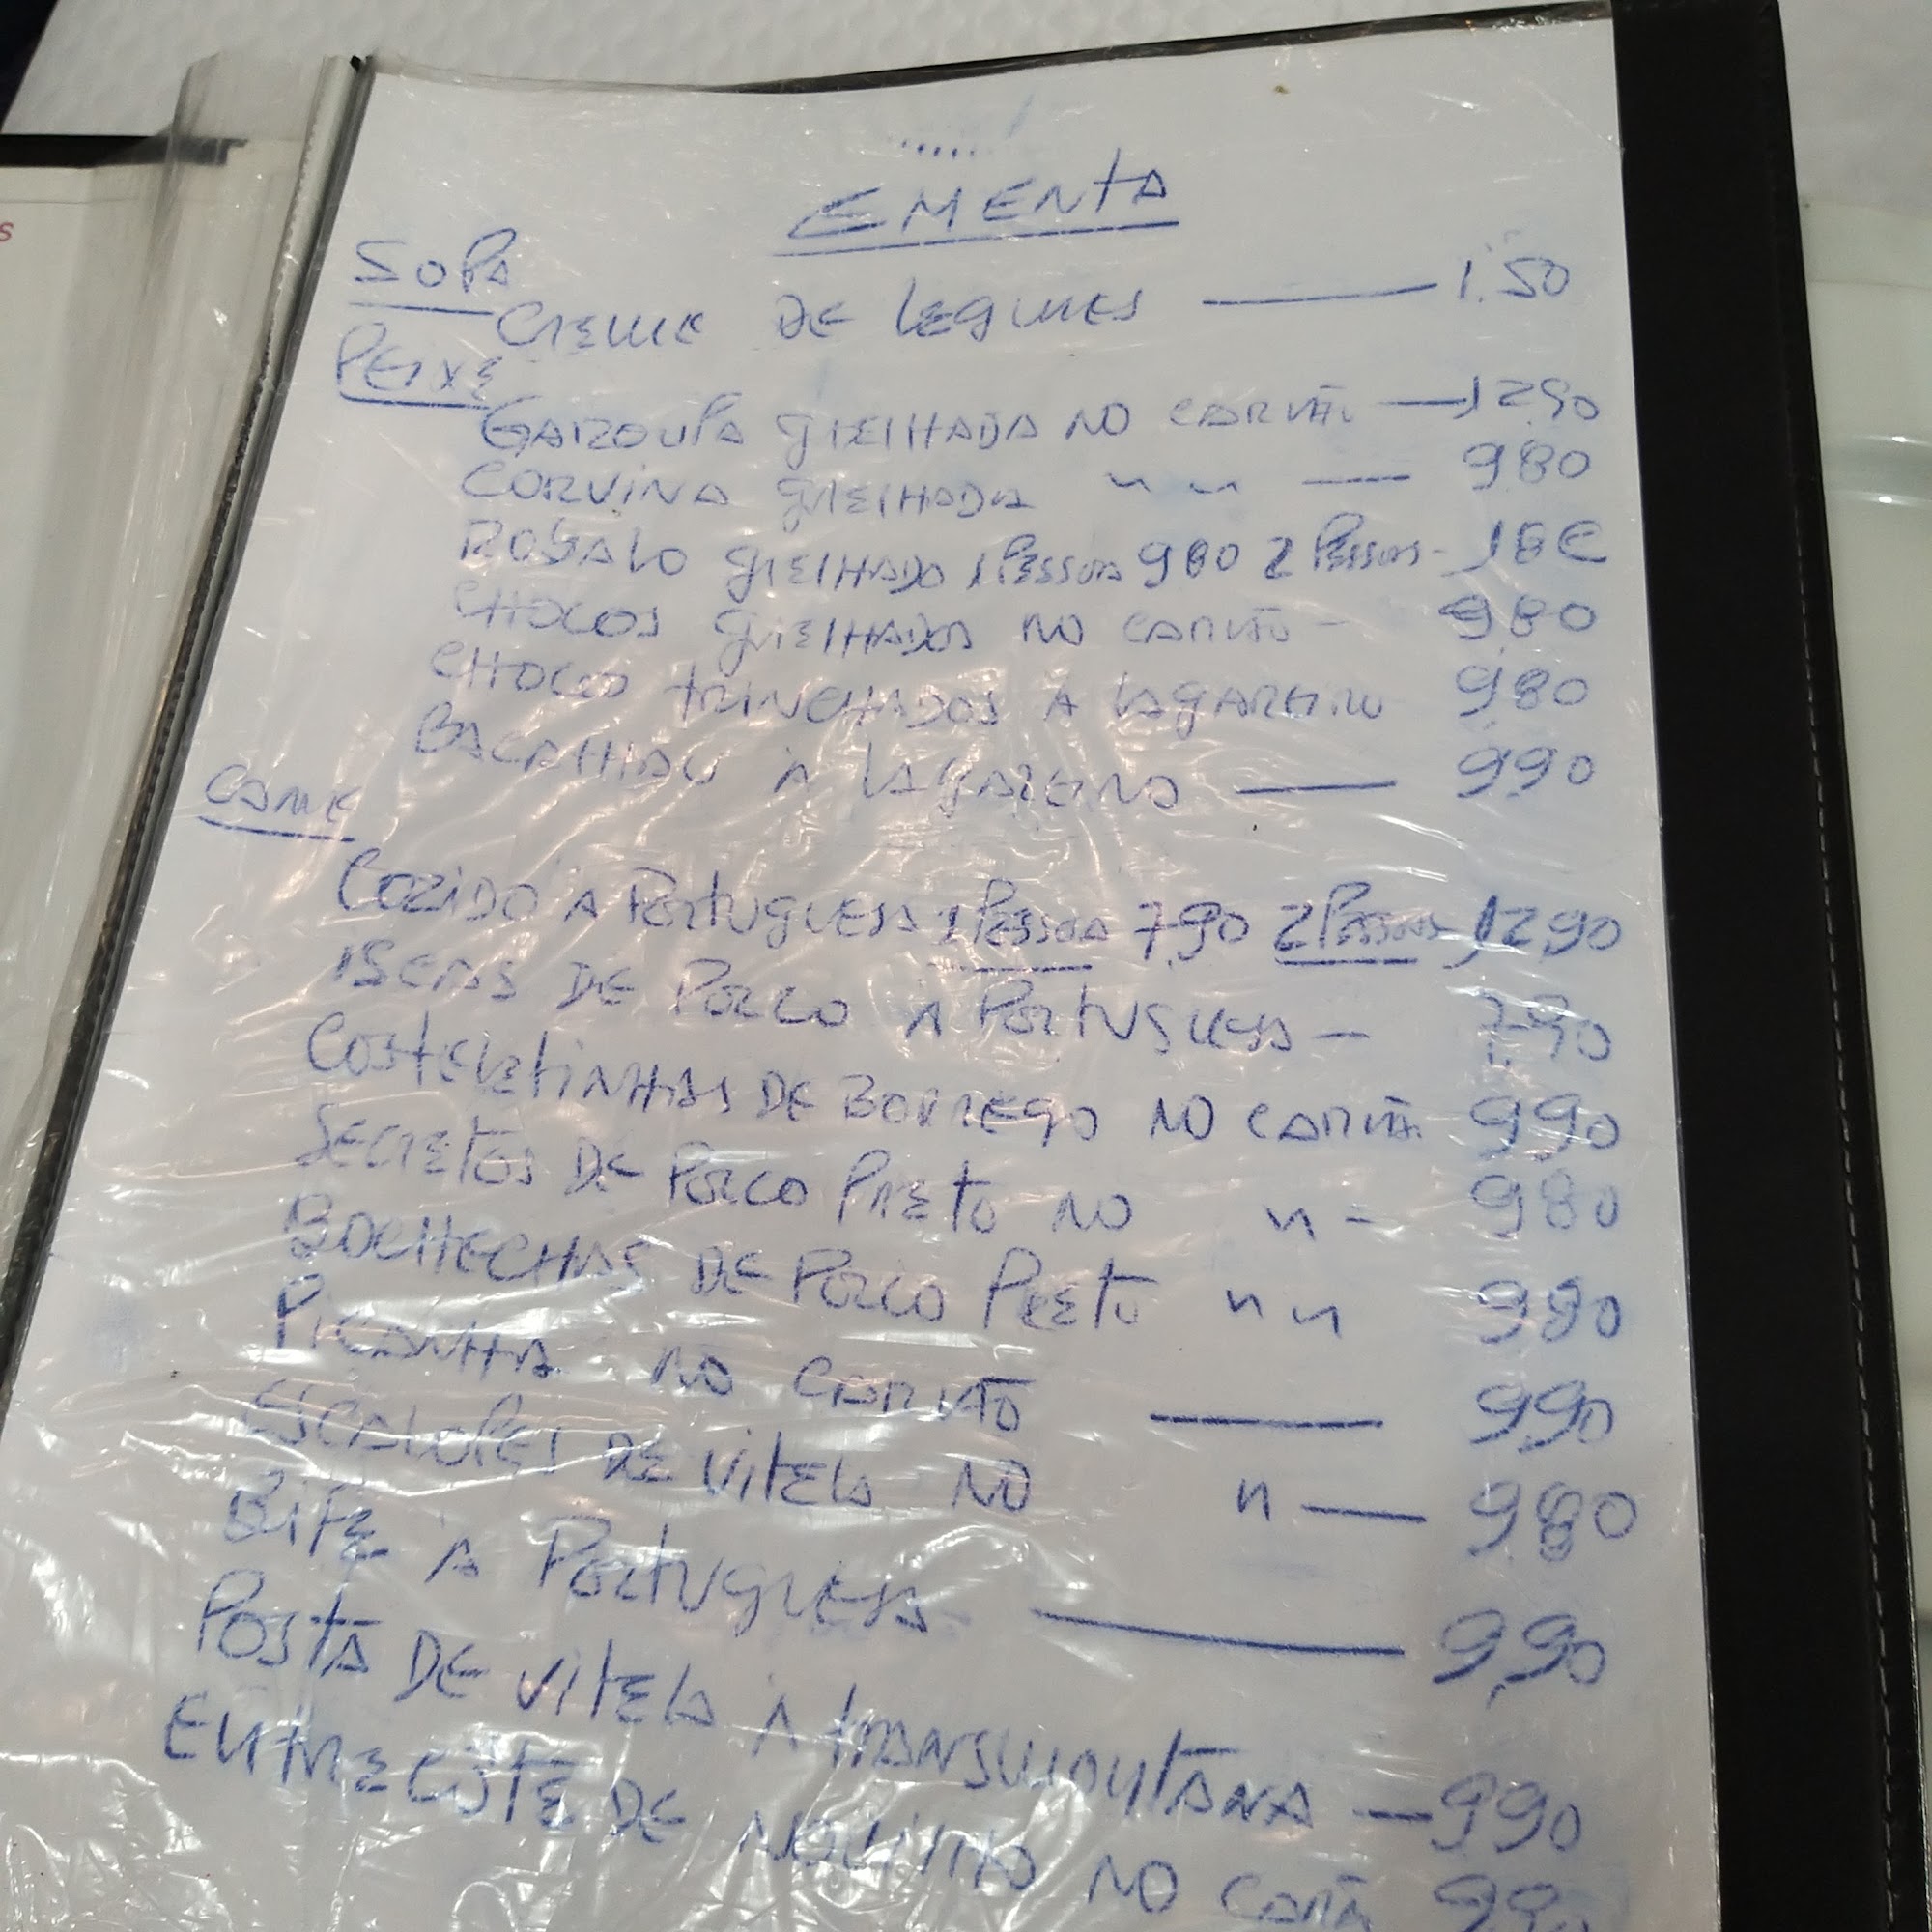 EMENTA
SOPA
CREME DE LEGUMES —— 1.50
PEIXE
GAROUPA GRELHADA NO CARVÃO — 1290
CORVINA GRELHADA " " — 980
ROBALO GRELHADO 1 PESSOA 980 2 PESSOAS - 18€
CHOCOS GRELHADOS NO CARVÃO - 980
CHOCOS TRINCHADOS À LAGAREIRO 980
BACALHAU À LAGAREIRO —— 990
CARNE
COZIDO À PORTUGUESA 1 PESSOA 7.90 2 PESSOAS 1290
ISCAS DE PORCO À PORTUGUESA — 7.90
COSTELETINHAS DE BORREGO NO CARVÃO 990
SECRETOS DE PORCO PRETO NO " - 980
BOCHECHAS DE PORCO PRETO " " 980
PICANHA NO CARVÃO —— 990
ESCALOPES DE VITELA NO " — 980
BIFE À PORTUGUESA —— 9,90
POSTA DE VITELA À TRANSMONTANA — 990
ENTRECÔTE DE NOVILHO NO CARVÃO 990